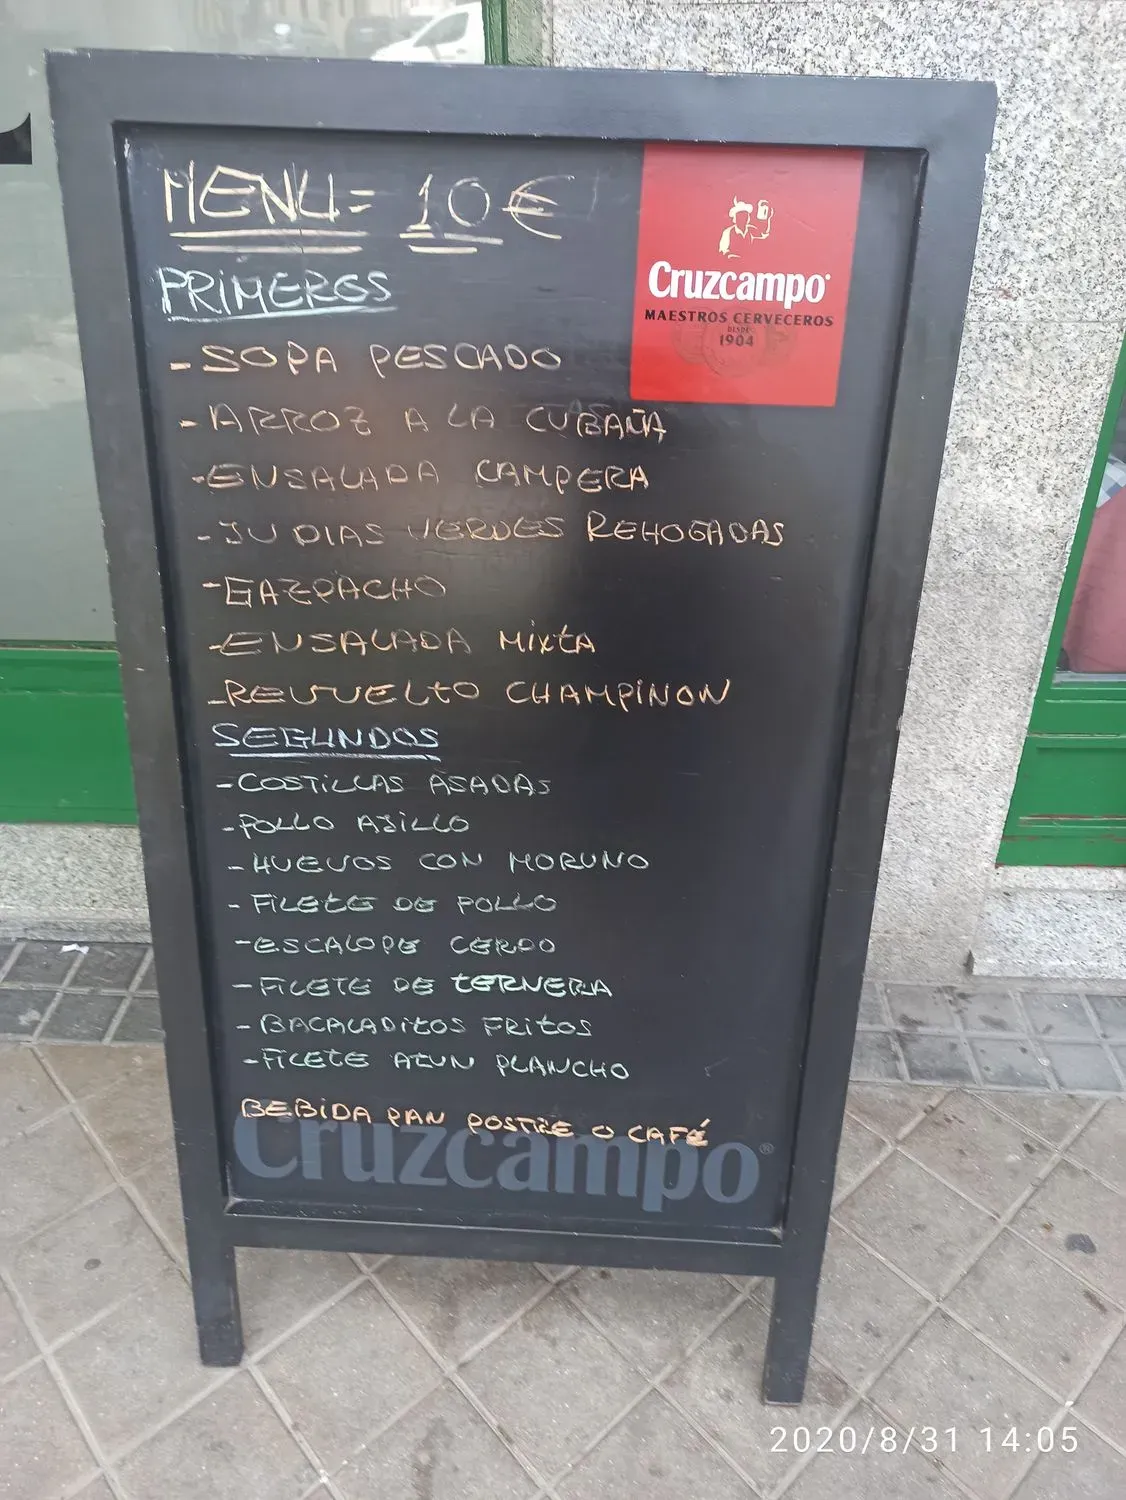 MENU= 10€
Cruzcampo
MAESTROS CERVECEROS
DESDE
1904
PRIMEROS
-SOPA PESCADO
-ARROZ A LA CUBAÑA
-ENSALADA CAMPERA
-JUDIAS VERDES REHOGADAS
-GAZPACHO
-ENSALADA MIXTA
-REVUELTO CHAMPINON
SEGUNDOS
-COSTILLAS ASADAS
-POLLO AJILLO
-HUEVOS CON MORUNO
-FILETE DE POLLO
-ESCALOPE CERDO
-FILETE DE TERNERA
-BACALADITOS FRITOS
-FILETE ATUN PLANCHO
BEBIDA PAN POSTRE O CAFÉ
Cruzcampo®
2020/8/31 14:05